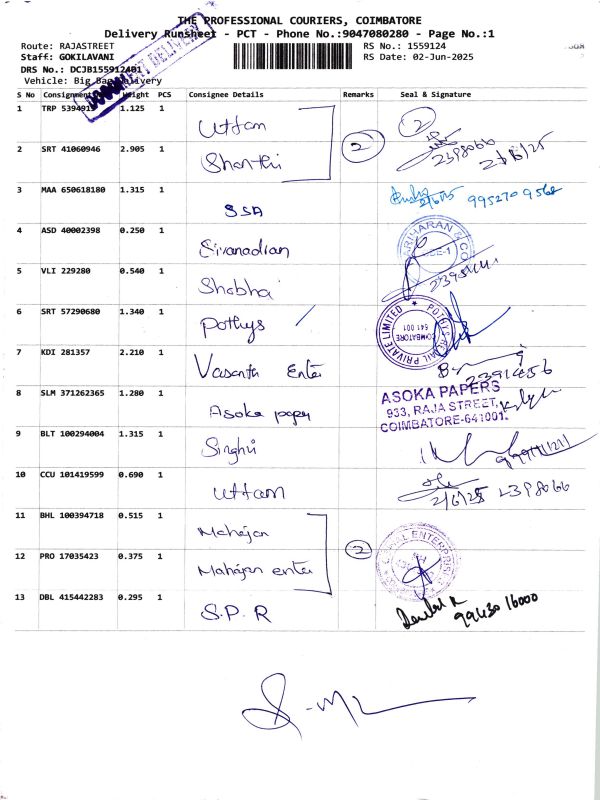 THE PROFESSIONAL COURIERS, COIMBATORE
Delivery Runsheet - PCT - Phone No.:9047080280 - Page No.:1
Route: RAJASTREET RS No.: 1559124
Staff: GOKILAVANI RS Date: 02-Jun-2025
DRS No.: DCJB155912401
Vehicle: Big Bag Delivery
DOCUMENT DELIVERY
S No Consignment Weight PCS Consignee Details Remarks Seal & Signature
1 TRP 5394913 1.125 1 Uttam 2
2 SRT 41060946 2.905 1 Shanthi 2 2398066 2/6/25
3 MAA 650618180 1.315 1 SSA 2/6/25 9952709568
4 ASD 40002398 0.250 1 Sivanadian HARIHARAN & CO
5 VLI 229280 0.540 1 Shobha
6 SRT 57290680 1.340 1 Pothys POTHYS RETAIL PRIVATE LIMITED COIMBATORE 641 001
7 KDI 281357 2.210 1 Vasanth Enter 2391456
8 SLM 371262365 1.280 1 Asoka paper ASOKA PAPERS
933, RAJA STREET,
COIMBATORE-641001.
9 BLT 100294004 1.315 1 Singhvi
10 CCU 101419599 0.690 1 Uttam 2/6/25 2398066
11 BHL 100394718 0.515 1 Mahajan
12 PRO 17035423 0.375 1 Mahajan enter 2 ENTERPRISE
13 DBL 415442283 0.295 1 S.P.R 99430 16000